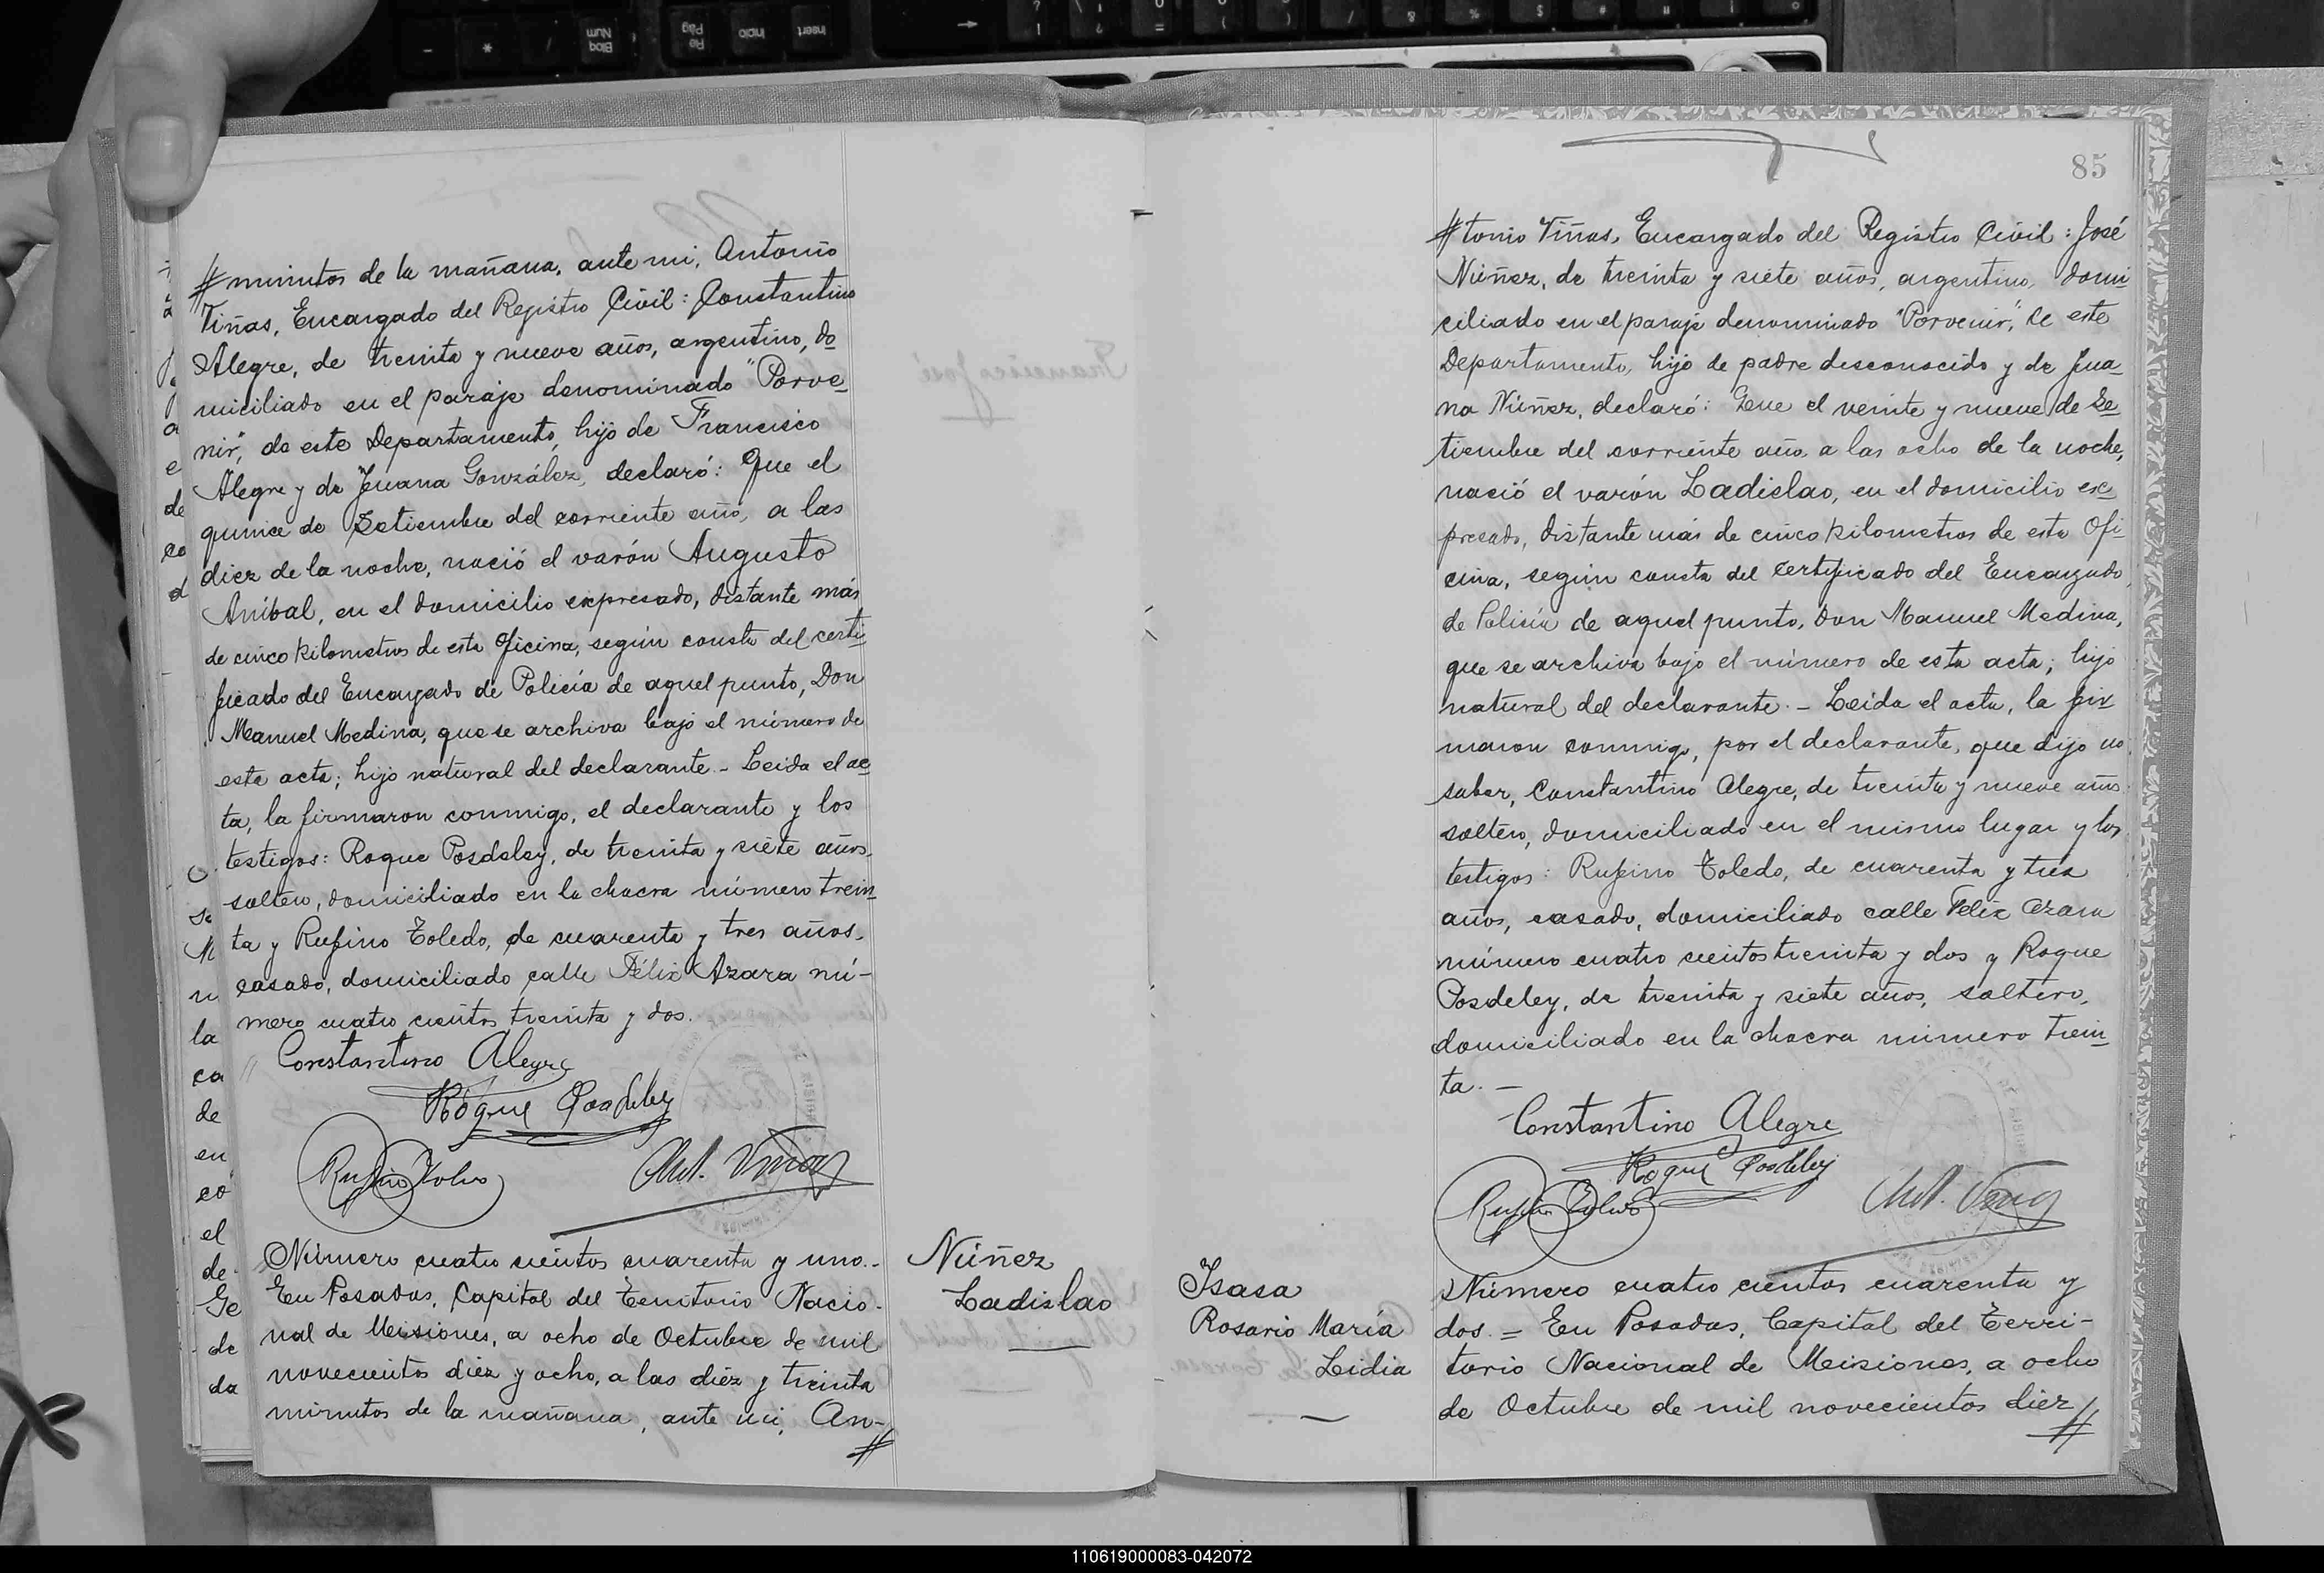 # minutos de la mañana, ante mi, Antonio
Viñas, Encargado del Registro Civil: Constantino
Alegre, de treinta y nueve años, argentino, do
miciliado en el paraje denominado "Porve
nir", de este Departamento, hijo de Francisco
Alegre y de Juana González, declaró: Que el
quince de Setiembre del corriente año, a las
diez de la noche, nació el varón Augusto
Aníbal, en el domicilio expresado, distante más
de cinco kilometros de esta Oficina, según consta del certi
ficado del Encargado de Policía de aquel punto, Don
Manuel Medina, que se archiva bajo el número de
esta acta; hijo natural del declarante.- Leida el ac
ta, la firmaron conmigo, el declarante y los
testigos: Roque Posdeley, de treinta y siete años,
soltero, domiciliado en la chacra número trein
ta y Rufino Toledo, de cuarenta y tres años,
casado, domiciliado calle Félix Azara nú-
mero cuatro cientos treinta y dos.
Constantino Alegre
Roque Posdeley
Rufino Toledo
Ant. Viñas
Número cuatro cientos cuarenta y uno.-
En Posadas, Capital del Territorio Nacio-
nal de Misiones, a ocho de Octubre de mil
novecientos diez y ocho, a las diez y treinta
minutos de la mañana, ante mi, An-
#
Núñez
Ladislao
85
# tonio Viñas, Encargado del Registro Civil: José
Núñez, de treinta y siete años, argentino, domi
ciliado en el paraje denominado "Porvenir", de este
Departamento, hijo de padre desconocido y de Jua-
na Núñez, declaró: Que el veinte y nueve de Se
tiembre del corriente año a las ocho de la noche,
nació el varón Ladislao, en el domicilio ex
presado, distante más de cinco kilometros de esta Ofi
cina, según consta del Certificado del Encargado
de Policía de aquel punto, Don Manuel Medina,
que se archiva bajo el número de esta acta; hijo
natural del declarante.- Leída el acta, la fir
maron conmigo, por el declarante, que dijo no
saber, Constantino Alegre, de treinta y nueve años
soltero, domiciliado en el mismo lugar y los
testigos: Rufino Toledo, de cuarenta y tres
años, casado, domiciliado calle Felix Azara
número cuatro cientos treinta y dos y Roque
Posdeley, de treinta y siete años, soltero,
domiciliado en la chacra número trein
ta.-
Constantino Alegre
Roque Posdeley
Rufino Toledo
Ant. Viñas
Isasa
Rosario María
Lidia
Número cuatro cientos cuarenta y
dos.= En Posadas, Capital del Terri-
torio Nacional de Misiones, a ocho
de Octubre de mil novecientos diez
#
110619000083-042072